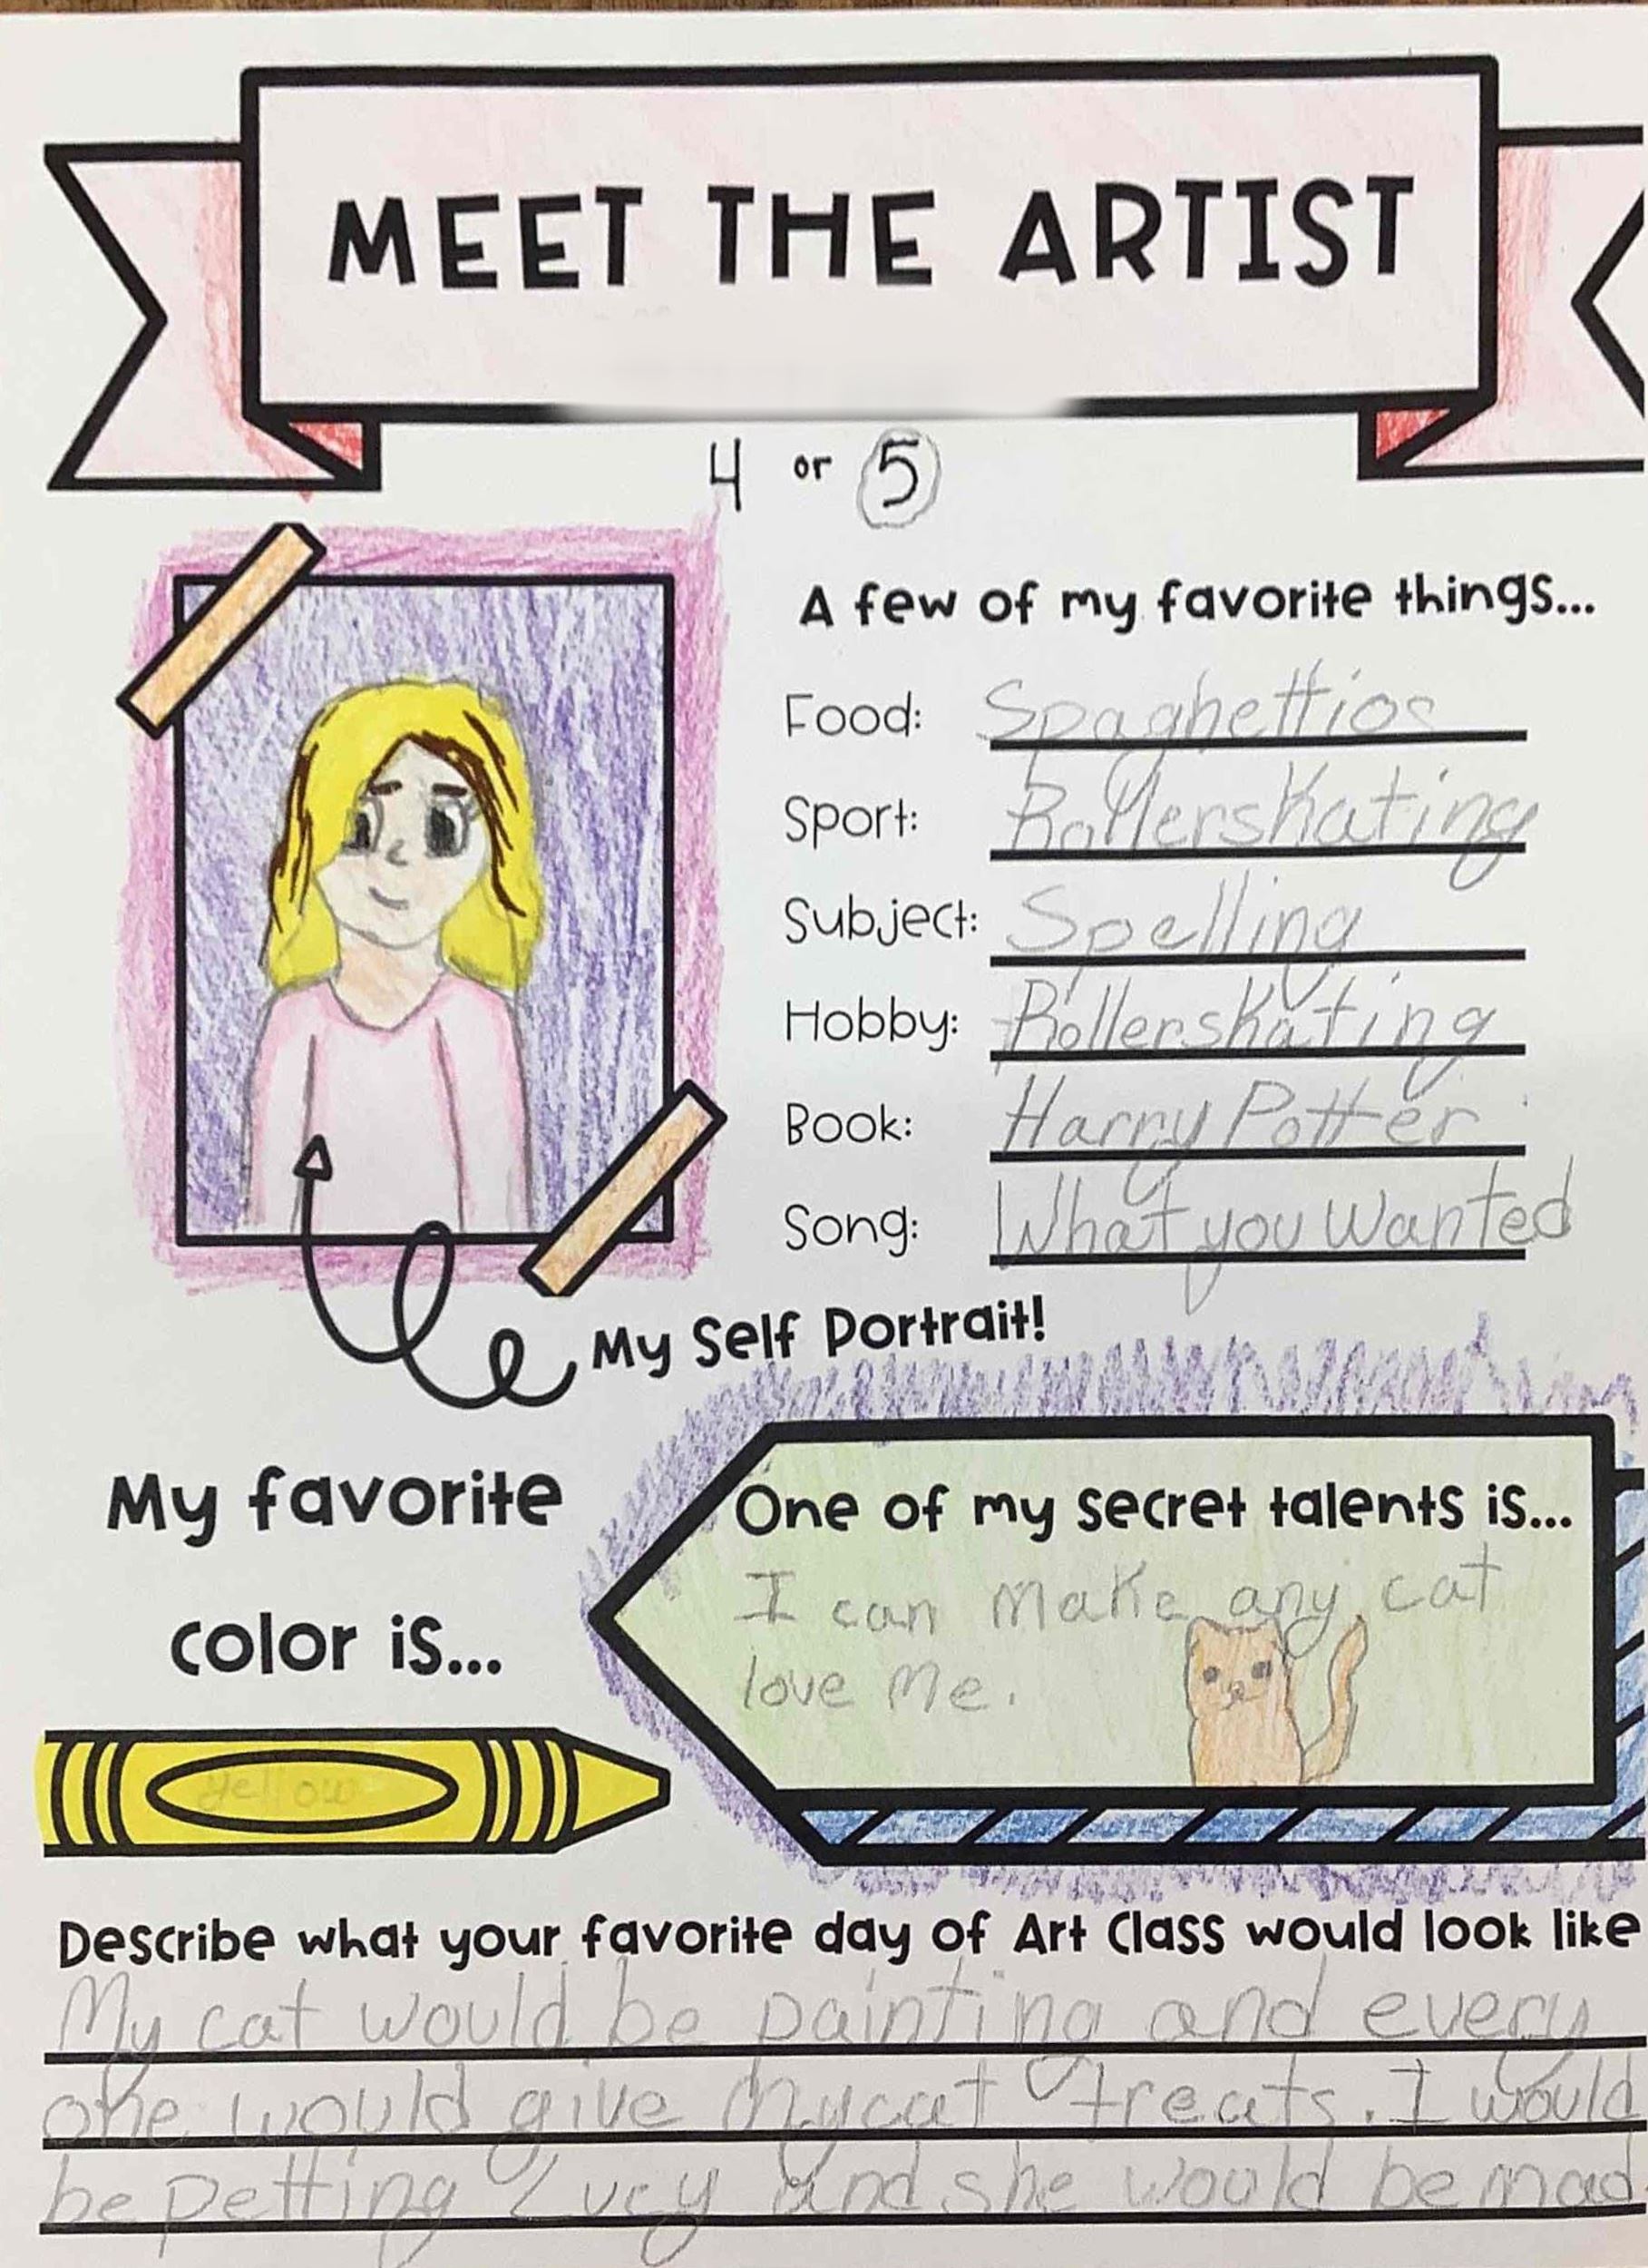 MEET THE ARTIST
4 or 5
A few of my favorite things...
Food: Spaghettios
Sport: Rollerskating
Subject: Spelling
Hobby: Rollerskating
Book: Harry Potter
Song: What you Wanted
My Self Portrait!
My favorite
color is...
yellow
One of my secret talents is...
I can make any cat
love me.
Describe what your favorite day of Art Class would look like
My cat would be painting and every
one would give my cat treats. I would
be petting Lucy and she would be mad.